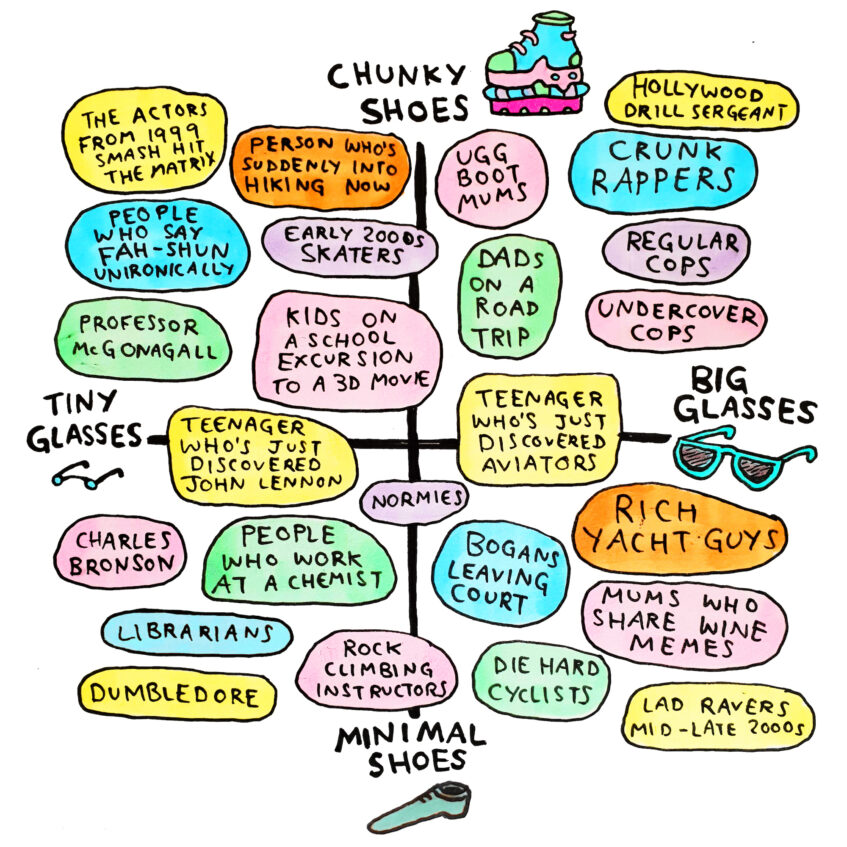 CHUNKY
SHOES
HOLLYWOOD
DRILL SERGEANT
THE ACTORS
FROM 1999
SMASH HIT
THE MATRIX
PERSON WHO'S
SUDDENLY INTO
HIKING NOW
UGG
BOOT
MUMS
CRUNK
RAPPERS
PEOPLE
WHO SAY
FAH-SHUN
UNIRONICALLY
EARLY 2000s
SKATERS
DADS
ON A
ROAD
TRIP
REGULAR
COPS
PROFESSOR
McGONAGALL
KIDS ON
A SCHOOL
EXCURSION
TO A 3D MOVIE
UNDERCOVER
COPS
TINY
GLASSES
TEENAGER
WHO'S JUST
DISCOVERED
JOHN LENNON
TEENAGER
WHO'S JUST
DISCOVERED
AVIATORS
BIG
GLASSES
NORMIES
CHARLES
BRONSON
PEOPLE
WHO WORK
AT A CHEMIST
BOGANS
LEAVING
COURT
RICH
YACHT GUYS
LIBRARIANS
MUMS WHO
SHARE WINE
MEMES
DUMBLEDORE
ROCK
CLIMBING
INSTRUCTORS
DIE HARD
CYCLISTS
LAD RAVERS
MID-LATE 2000s
MINIMAL
SHOES